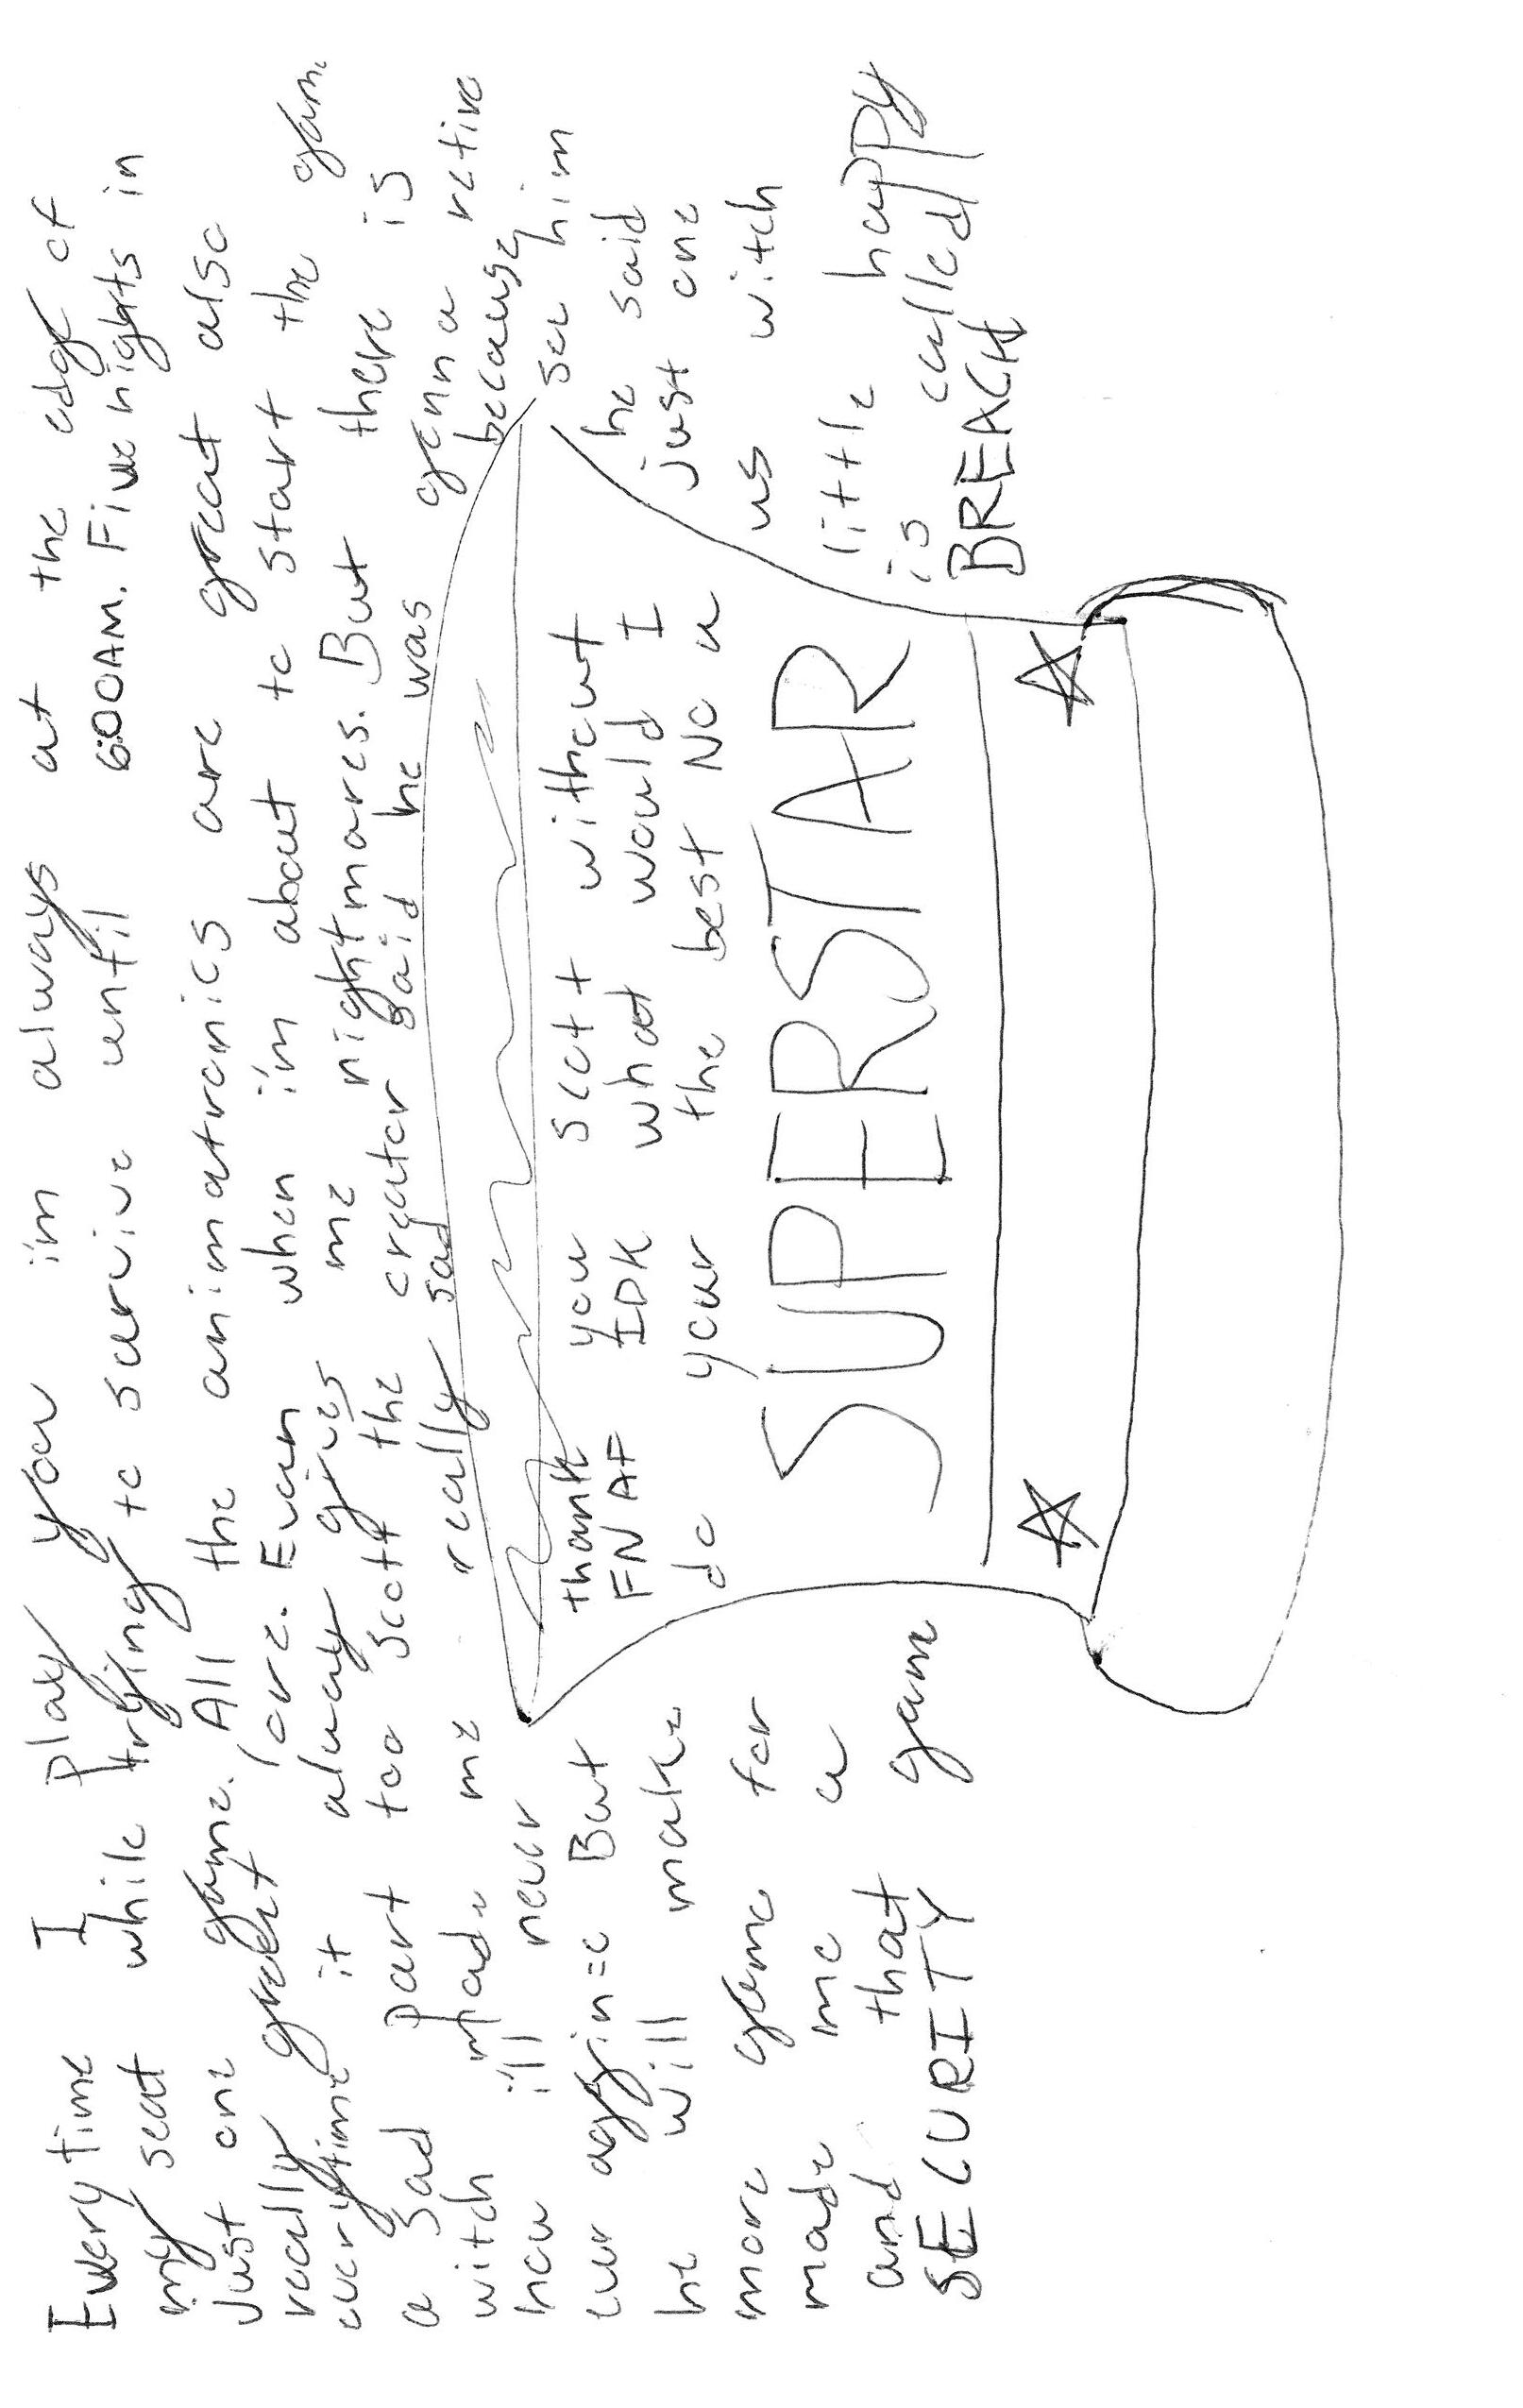 Every time I play you i'm always at the edge of
my seat while trying to survive until 6:00AM. Five nights in
Just one game. All the animatronics are great also
really great lore. Even when i'm about to start the game
everytime it alway gives me nightmares. But there is
a sad part too Scott the creator said he was gonna retire
witch made me really sad because
how i'll never see him
ever aggin=c But he said
he will make just one
more game for us witch
made me a little happy
and that game is called
SECURITY BREACH
thank you scott without
FNAF IDK what would I
do your the best No a
SUPERSTAR